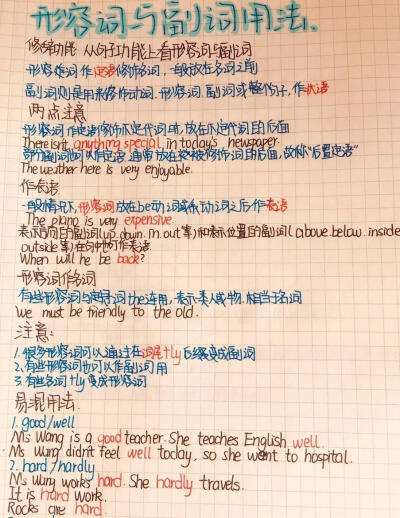 形容词与副词用法.
修饰功能 从句子功能上看形容词与副词
形容词作定语修饰名词,一般放在名词之前
副词则是用来修饰动词.形容词.副词或整个句子,作状语
两点注意
形容词作定语修饰不定代词时,放在不定代词的后面
There isn't anything special in today's newspaper.
部分副词也可以作定语,通常放在被修饰词的后面,故称"后置定语"
The weather here is very enjoyable.
作表语
一般情况下,形容词放在be动词或系动词之后作表语
The piano is very expensive.
表示方向的副词(up.down.in.out等)和表示位置的副词(above.below.inside
outside等)在句中也可作表语
When will he be back?
形容词作名词
有些形容词与定冠词the连用,表示一类人或物,相当于名词
We must be friendly to the old.
注意:
1.很多形容词可以通过在词尾+ly后缀变成副词
2.有些形容词也可以作副词用
3.有些名词+ly变成形容词
易混用法.
1.good/well
Ms Wang is a good teacher. She teaches English well.
Ms Wang didn't feel well today, so she went to hospital.
2.hard/hardly
Ms Wang works hard. She hardly travels.
It is hard work.
Rocks are hard.